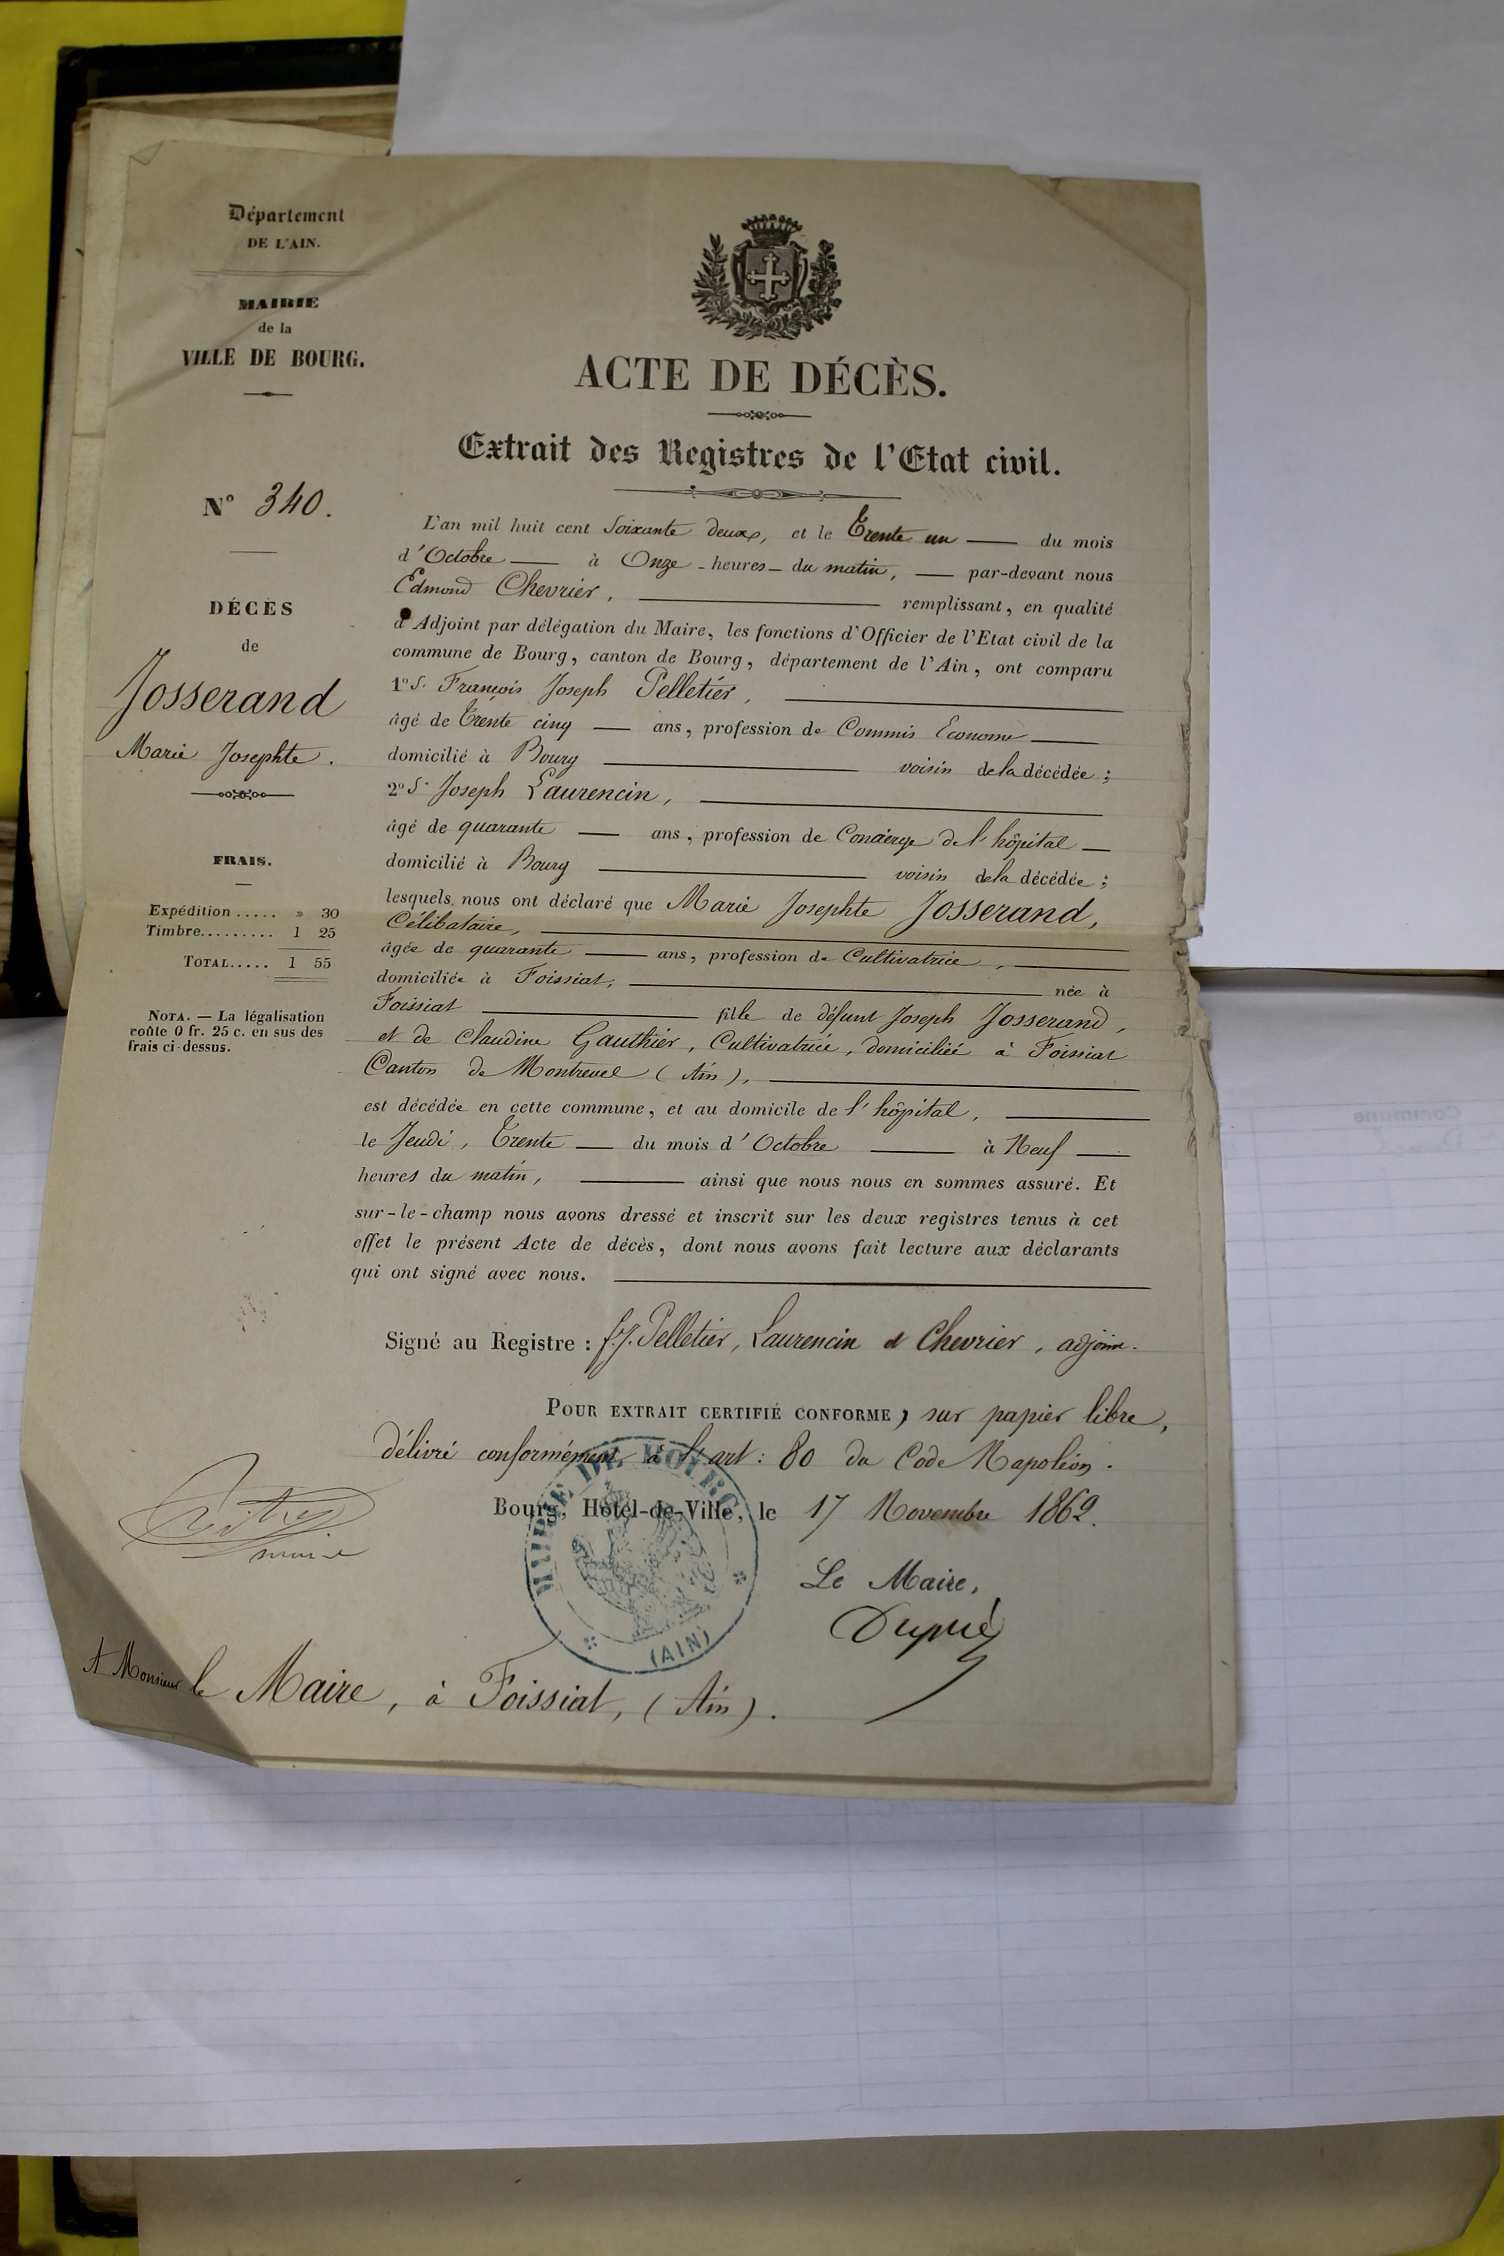 Département
DE L'AIN.
MAIRIE
de la
VILLE DE BOURG.
N° 340.
DÉCÈS
de
Josserand
Marie Josephte.
FRAIS.
Expédition..... » 30
Timbre......... 1 25
TOTAL..... 1 55
NOTA. — La légalisation
coûte 0 fr. 25 c. en sus des
frais ci-dessus.
ACTE DE DÉCÈS.
Extrait des Registres de l'Etat civil.
L'an mil huit cent Soixante deux, et le Trente un — du mois
d'Octobre — à Onze - heures - du matin, — par-devant nous
Edmond Chevrier, — remplissant, en qualité
d'Adjoint par délégation du Maire, les fonctions d'Officier de l'Etat civil de la
commune de Bourg, canton de Bourg, département de l'Ain, ont comparu
1° S. François Joseph Pelletier, —
âgé de Trente cinq — ans, profession de Commis Econome —
domicilié à Bourg — voisin de la décédée;
2° S. Joseph Laurencin, —
âgé de quarante — ans, profession de Concierge de l'hôpital —
domicilié à Bourg — voisin de la décédée;
lesquels nous ont déclaré que Marie Josephte Josserand,
Célibataire, —
âgée de quarante — ans, profession de Cultivatrice, —
domiciliée à Foissiat, — née à
Foissiat — fille de défunt Joseph Josserand,
et de Claudine Gauthier, Cultivatrice, domiciliée à Foissiat
Canton de Montrevel (Ain), —
est décédée en cette commune, et au domicile de l'hôpital, —
le Jeudi, Trente — du mois d'Octobre — à Neuf —
heures du matin, — ainsi que nous nous en sommes assuré. Et
sur-le-champ nous avons dressé et inscrit sur les deux registres tenus à cet
effet le présent Acte de décès, dont nous avons fait lecture aux déclarants
qui ont signé avec nous. —
Signé au Registre : f. J. Pelletier, Laurencin et Chevrier, adjoint.
POUR EXTRAIT CERTIFIÉ CONFORME, sur papier libre,
délivré conformément à l'art : 80 du Code Napoléon.
Bourg, Hôtel-de-Ville, le 17 Novembre 1862.
MAIRIE DE BOURG
(AIN)
Le Maire,
A Monsieur le Maire, à Foissiat, (Ain).